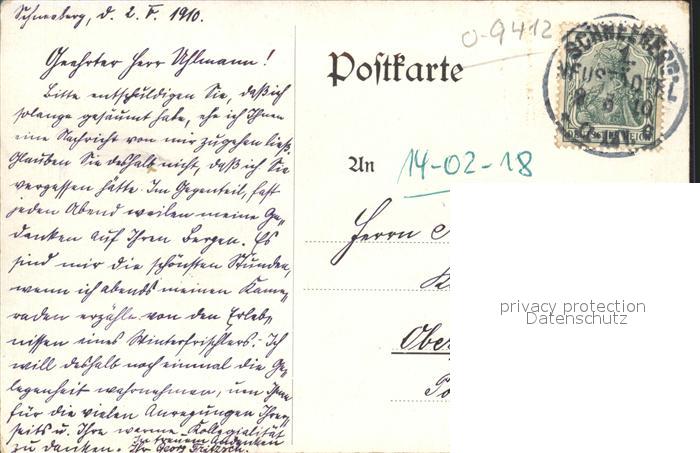 Schneeberg, d. 2. V. 1910.
Geehrter Herr Uhlmann!
Bitte entschuldigen Sie, daß ich
solange gesäumt habe, ehe ich Ihnen
eine Nachricht von mir zugehen ließ.
Glauben Sie deshalb nicht, daß ich Sie
vergessen hätte. Im Gegenteil, fast
jeden Abend weilen meine Ge-
danken auf Ihren Bergen. Es
sind mir die schönsten Stunden,
wenn ich abends meinen Kame-
raden erzähle von den Erleb-
nissen eines Winterfrischlers. Ich
will deshalb noch einmal die Ge-
legenheit wahrnehmen, um Ihnen
für die vielen Anregungen Ihrer-
seits u. Ihre warme Kollegialität
zu danken. In treuem Andenken
Ihr Georg Fritzsch.
O-9412
Postkarte
SCHNEEBERG
NEUSTÄDTEL
An 14-02-18
Herrn
Ober
privacy protection
Datenschutz